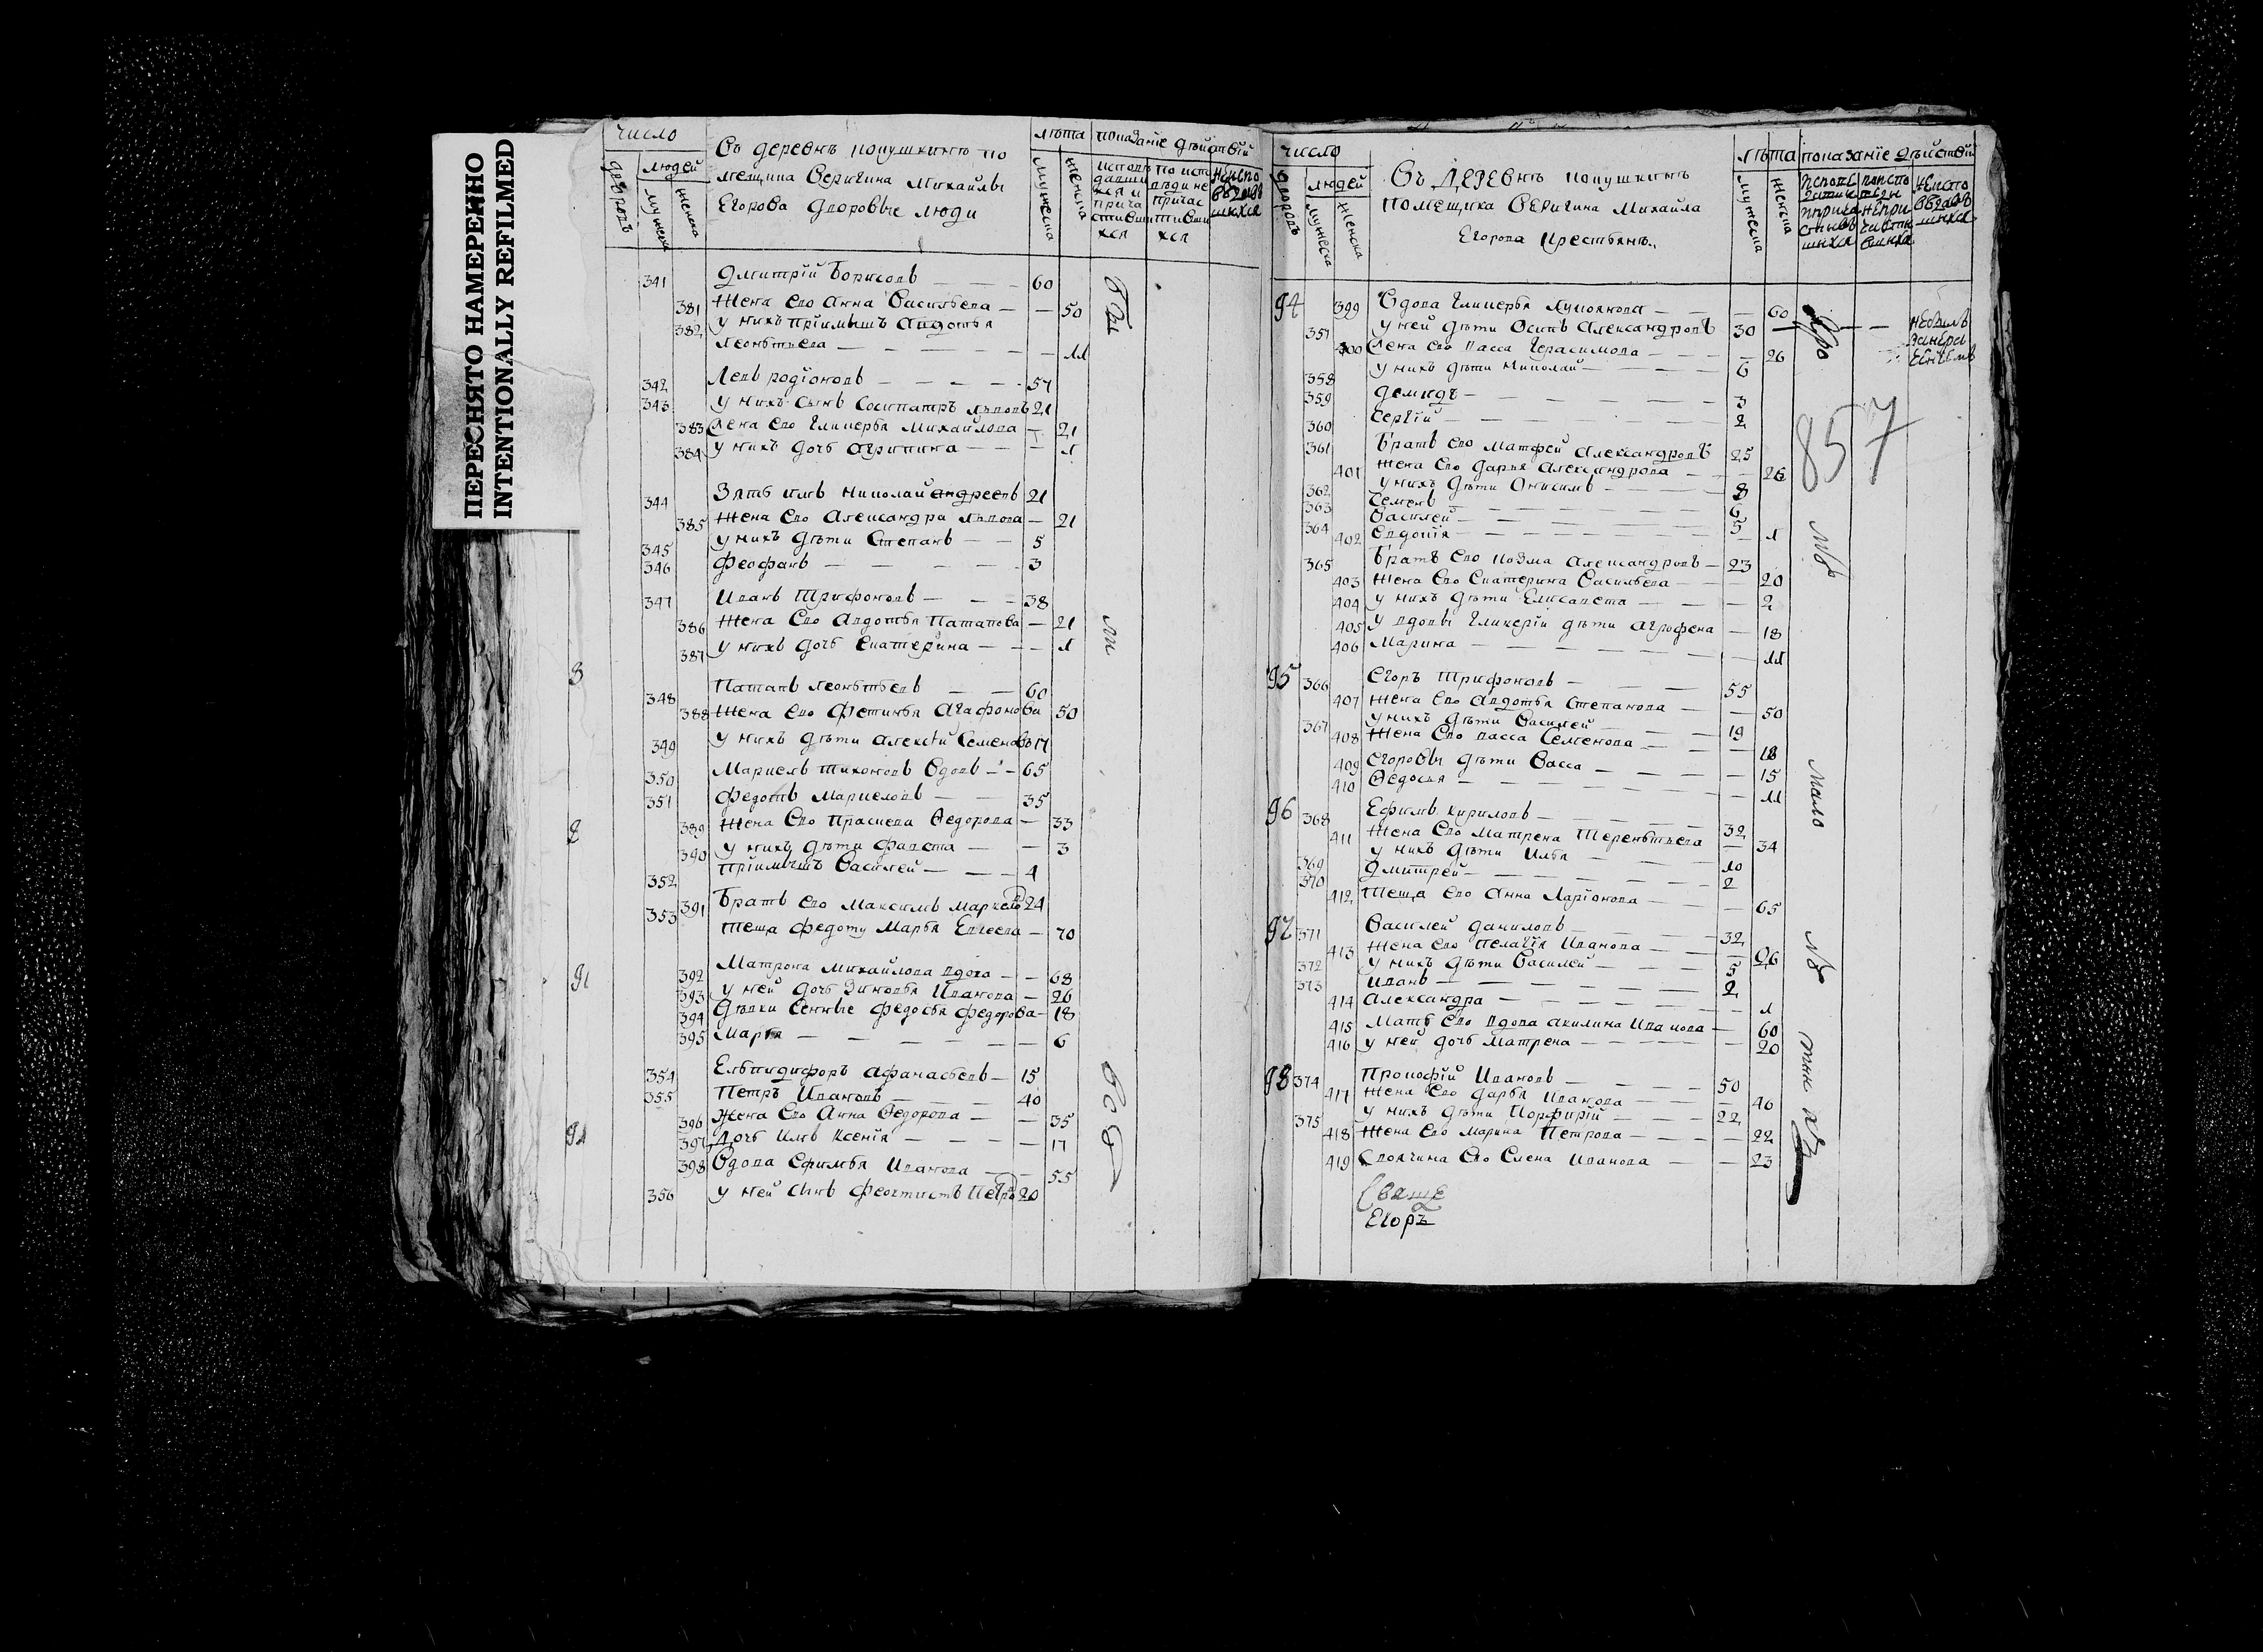 ПЕРЕСНЯТО НАМЕРЕННО
INTENTIONALLY REFILMED
число
людей
мужеска
женска
Въ деревнѣ покушкинѣ по
мещика Веригина Михайлы
Егорова дворовые люди
лѣта
показанїе дѣйствій
мужеска
женска
341 Дмитрїй Борисовъ — — — 60
381 Жена Его Анна Васильева — — 50
382 у нихъ прїимышъ Авдотья
Леонтьева — — — — — — 11
342 Левъ родїоновъ — — — — 57
343 у нихъ сынъ Сосипатръ львовъ 21
383 Жена Его Гликерья Михайлова — 21
384 у нихъ дочь агрипина — — — 1
344 Зять имъ николай андреевъ 21
385 Жена Его Александра львова — 21
345 у нихъ дѣти Степанъ — — 5
346 Феофанъ — — — — — 3
347 Иванъ Трифоновъ — — — 38
386 Жена Его Авдотья Патапова — 21
387 у нихъ дочь Екатерина — — — 1
348 Патапъ леонтьевъ — — 60
388 Жена Его Фетинья Агафонова 50
349 у нихъ дѣти алексѣй Семеновъ 17
350 Маркелъ тихоновъ вдовъ — — 65
351 Федотъ Маркеловъ — — 35
389 Жена Его Прасковья Ѳедорова — 33
390 у нихъ дѣти — — 3
352 прїимышъ Василей — — — 4
353 391 Братъ его Максимъ Маркеловъ 24
теща Федоту Марья — 70
91 392 Матрона Михайлова вдова — — 68
393 у ней дочь Зиновья Иванова — 26
394 Дѣвки Сенные федосья федорова — 18
395 Марья — — — — — — 6
354 Елпидифоръ афанасьевъ — 15
355 Петръ Ивановъ — — — 40
396 Жена Его Анна Ѳедорова — — 35
397 Дочь имъ Ксенїя — — — — 17
398 Вдова Ефимья Иванова — — 55
356 у ней сынъ Феоктистъ Петровъ 20
число
дворовъ
людей
мужеска
женска
Въ ДЕРЕВНѢ покушкинѣ
помещика Веригина Михайла
Егорова крестьянъ
лѣта
показанїе дѣйствій
мужеска
женска
94 399 Вдова Гликерья Лукоянова — — — 60
357 у ней дѣти Осипъ Александровъ 30
400 Жена его васса Герасимова — — — 26
358 у нихъ дѣти николай — — — 6
359 Демидъ — — — — — 3
360 Сергїй — — — — — 2
361 Братъ его матфей Александровъ 25
401 Жена Его Дарья Александрова — — 26
362 у нихъ дѣти Онисимъ — — — 8
363 Семенъ — — — — — 6
364 Василей — — — — — 5
402 Евдокїя — — — — — 1
365 Братъ Его козма Александровъ — 23
403 Жена Его Екатерина Васильева — — 20
404 у нихъ дѣти Елисавета — — — 2
405 у вдовы Гликерїи дѣти агрофена — 18
406 Марина — — — — — 11
95 366 Егоръ Трифоновъ — — — 55
407 Жена Его Авдотья Степанова — — 50
367 у нихъ дѣти Василей — — — 19
408 Жена Его васса Семенова — — — 18
409 Егоровы дѣти Васса — — — — 15
410 Ѳедосья — — — — — 11
96 368 Ефимъ кириловъ — — — — 32
411 Жена Его Матрена Терентьева — 34
369 у нихъ дѣти Илья — — — 10
370 Дмитрей — — — — — 2
412 теща его Анна Ларїонова — — — 65
97 371 Василей даниловъ — — — 32
413 Жена Его пелагїя Иванова — — — 26
372 у нихъ дѣти Василей — — — 5
373 Иванъ — — — — — 2
414 Александра — — — — — 1
415 Мать Его вдова акилина Иванова — 60
416 у ней дочь Матрена — — — — 20
98 374 Прокофїй Ивановъ — — — 50
417 Жена Его дарья Иванова — — — 46
375 у нихъ дѣти Порфирїй — — — 22
418 Жена Его Марина Петрова — — — 22
419 Своячина Его Елена Иванова — — 23
Егоръ
857